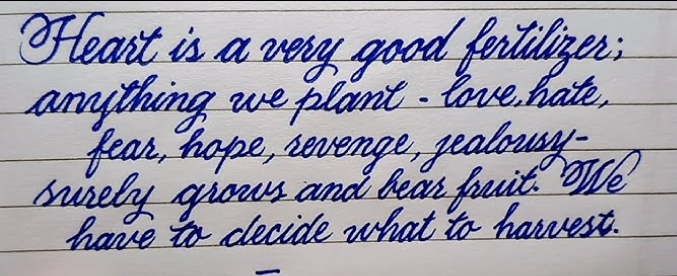 Heart is a very good fertilizer;
anything we plant - love, hate,
fear, hope, revenge, jealousy-
surely grows and bear fruit. We
have to decide what to harvest.